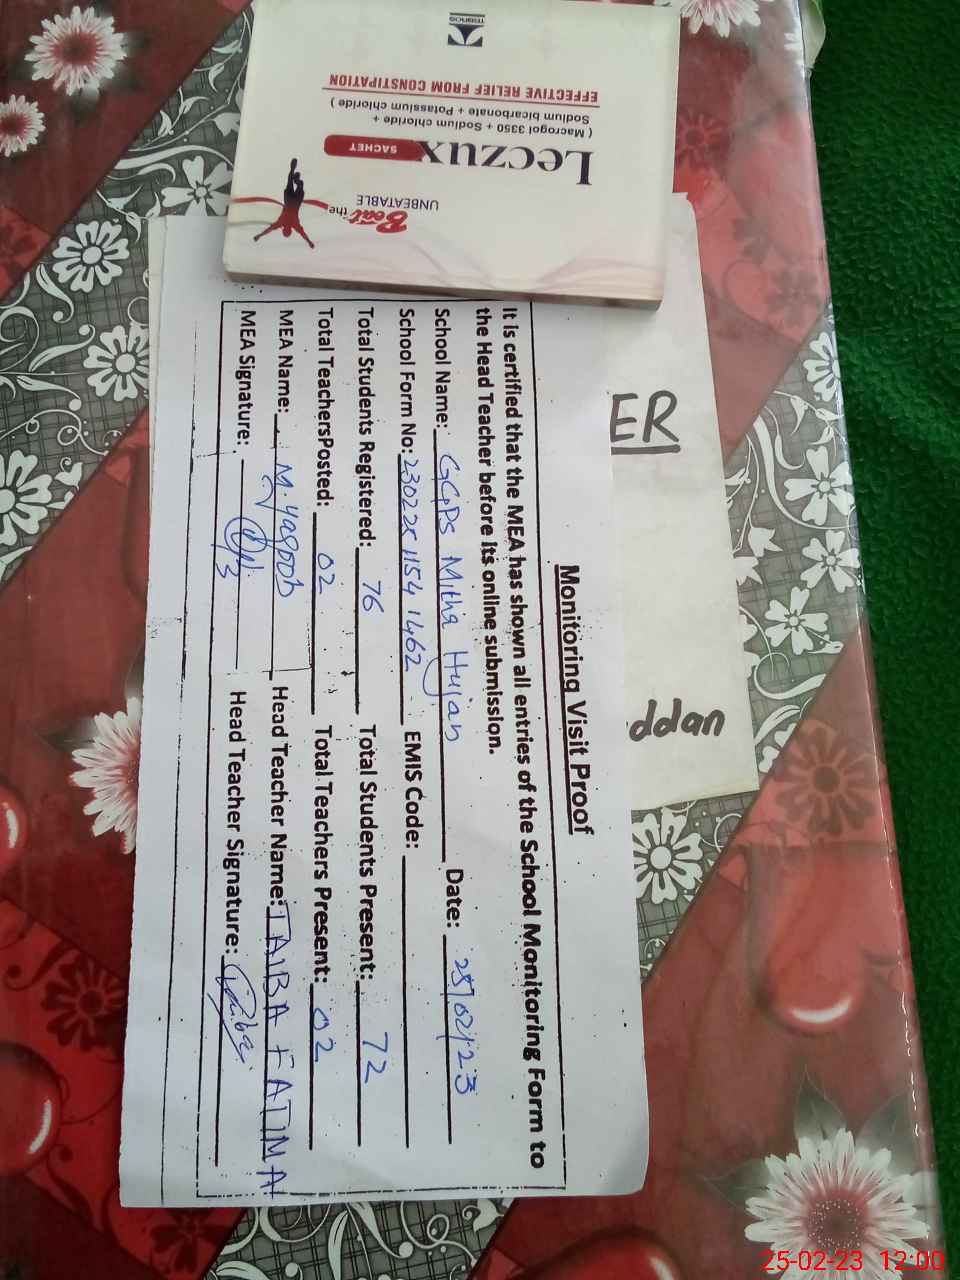 Monitoring Visit Proof
It is certified that the MEA has shown all entries of the School Monitoring Form to
the Head Teacher before its online submission.
School Name: GGPS Mitha Hujan Date: 25/02/23
School Form No: 230225 1154 1462 EMIS Code:
Total Students Registered: 76 Total Students Present: 72
Total TeachersPosted: 02 Total Teachers Present: 02
MEA Name: M. yaqoob Head Teacher Name: TAIBA FATIMA
MEA Signature: Head Teacher Signature: Taiba
manos
EFFECTIVE RELIEF FROM CONSTIPATION
( Macrogol 3350 + Sodium chloride +
Sodium bicarbonate + Potassium chloride )
Leczux SACHET
Beat the
UNBEATABLE
ER
ddan
25-02-23 12:00